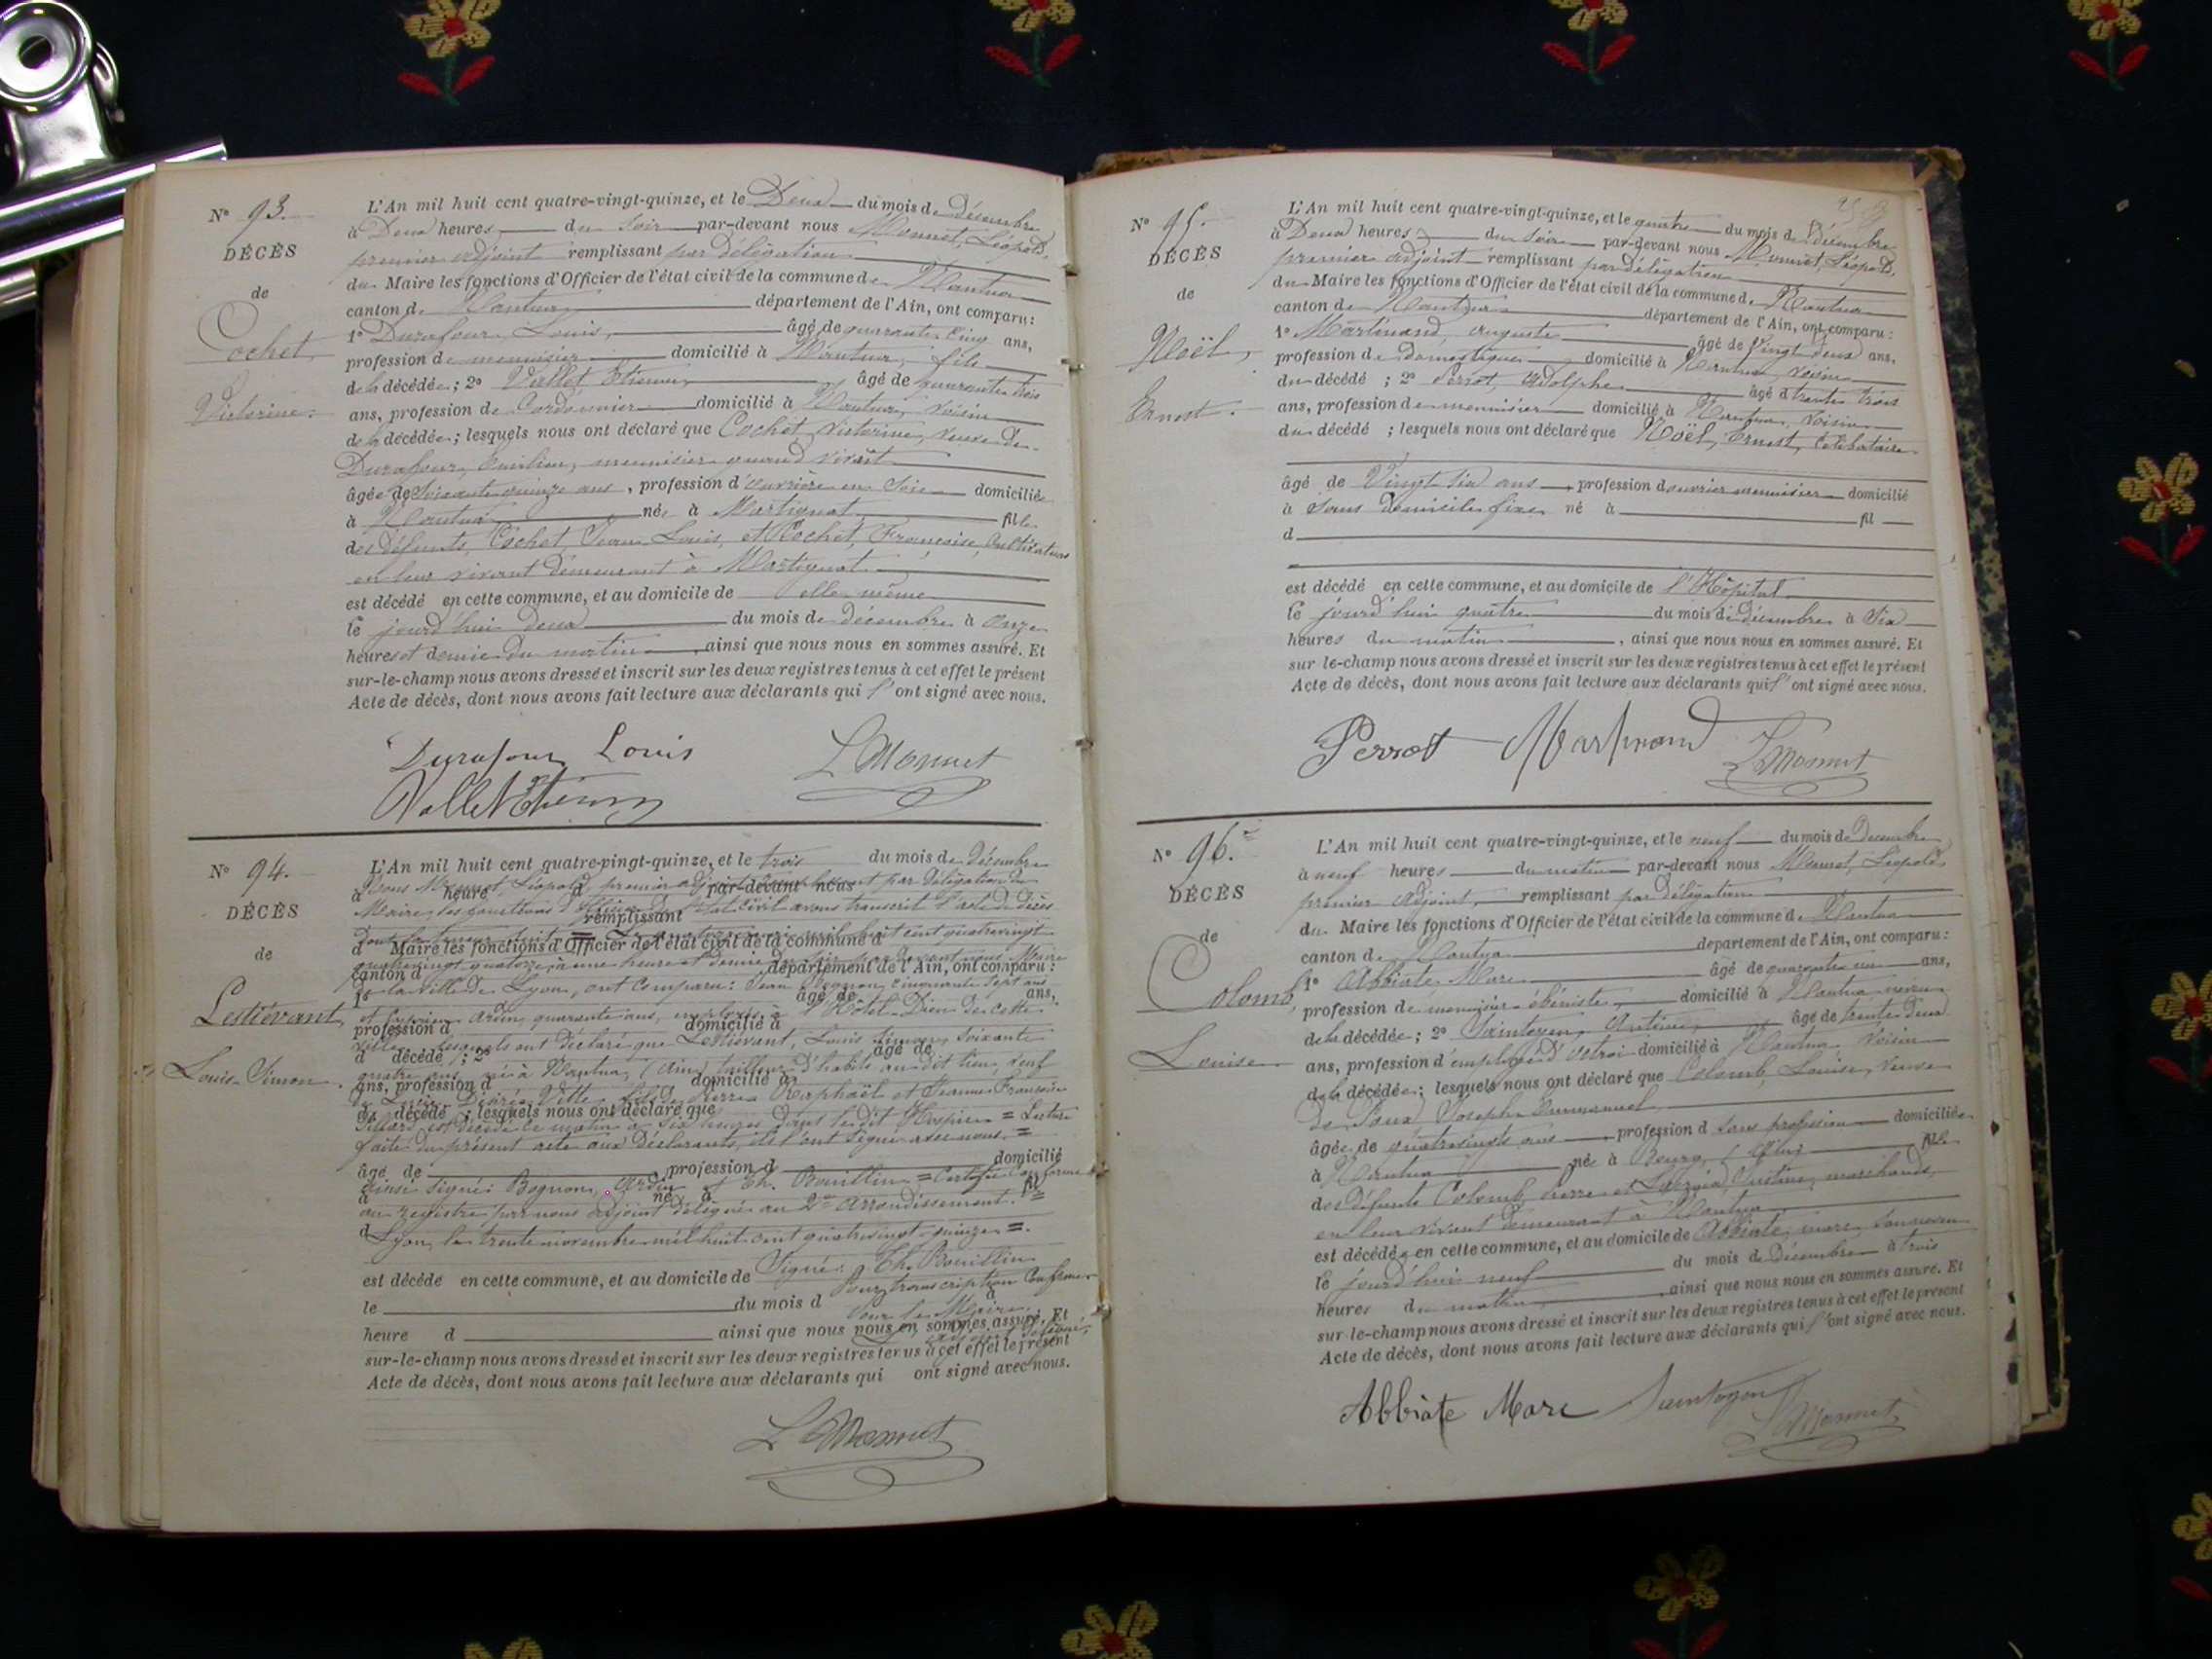 N° 93.
DÉCÈS
de
Cochet
Victorine.
L'An mil huit cent quatre-vingt-quinze, et le Deux du mois de décembre
à Deux heures du soir par-devant nous Monnet, Léopold,
premier adjoint remplissant par délégation
du Maire les fonctions d'Officier de l'état civil de la commune de Nantua
canton de Nantua département de l'Ain, ont comparu:
1° Durafour, Louis, âgé de quarante cinq ans,
profession de menuisier domicilié à Nantua, fils
de la décédée; 2° Vallet Etienne, âgé de quarante trois
ans, profession de Cordonnier domicilié à Nantua, voisin
de la décédée; lesquels nous ont déclaré que Cochet, Victorine, veuve de
Durafour, Emilien, menuisier quand vivait
âgée de soixante quinze ans, profession d'ouvrière en soie domiciliée
à Nantua née à Martignat fille
des défunts, Cochet, Jean Louis, et Rochet, Françoise, Cultivateurs
en leur vivant demeurant à Martignat
est décédé en cette commune, et au domicile de elle même
le jourd'hui deux du mois de décembre à onze
heures et demie du matin, ainsi que nous nous en sommes assuré. Et
sur-le-champ nous avons dressé et inscrit sur les deux registres tenus à cet effet le présent
Acte de décès, dont nous avons fait lecture aux déclarants qui l'ont signé avec nous.
Durafour Louis
L. Monnet
Vallet Etienne
N° 94.
DÉCÈS
de
Lestiévant,
Louis Simon.
L'An mil huit cent quatre-vingt-quinze, et le trois du mois de Décembre
à heure d par-devant nous
Nous Monnet, Léopold, premier adjoint remplissant par délégation du
remplissant
Maire, les fonctions d'Officier de l'état civil avons transcrit l'acte de décès
d Maire les fonctions d'Officier de l'état civil de la commune d
quatrevingt quatorze, à une heure et demie
canton d département de l'Ain, ont comparu:
de la ville de Lyon, ont comparu: Jean Bognon, cinquante sept ans
1° âgé de ans,
et Ardin, quarante ans, employés à l'Hôtel-Dieu de cette
profession d domicilié à
ville, lesquels ont déclaré que Lestiévant, Louis Simon, soixante
d décédé; 2° âgé de
quatre ans, né à Nantua, (Ain) tailleur d'habits audit lieu, veuf
ans, profession d domicilié à
fils de Pierre Raphaël et Jeanne Françoise
d décédé; lesquels nous ont déclaré que
est décédé ce matin à six heures dans ledit Hospice = Lecture
faite du présent acte aux Déclarants, ils l'ont signé avec nous =
âgé de profession d domicilié
ainsi signé: Bognon, Ardin et Th. Bouillin = Certifié conforme
à né à fil
au registre par nous adjoint délégué au 2me arrondissement. =
Lyon, le trente novembre mil huit cent quatrevingt quinze =
est décédé en cette commune, et au domicile de Signé: Th. Bouillin
Pour transcription conforme
le du mois d à
Pour le Maire
heure d ainsi que nous nous en sommes assuré. Et
sur-le-champ nous avons dressé et inscrit sur les deux registres tenus à cet effet le présent
Acte de décès, dont nous avons fait lecture aux déclarants qui ont signé avec nous.
L. Monnet
N° 95.
DÉCÈS
de
Noël,
Ernest.
L'An mil huit cent quatre-vingt-quinze, et le quatre du mois de décembre
à Deux heures du soir par-devant nous Monnet, Léopold,
premier adjoint remplissant par délégation
du Maire les fonctions d'Officier de l'état civil de la commune de Nantua
canton de Nantua département de l'Ain, ont comparu:
1° Martinand, Auguste âgé de vingt deux ans,
profession de domestique domicilié à Nantua voisin
du décédé; 2° Perrot, Adolphe âgé d trente trois
ans, profession de menuisier domicilié à Nantua, voisin
du décédé; lesquels nous ont déclaré que Noël, Ernest, Célibataire
âgé de Vingt six ans, profession d'ouvrier menuisier domicilié
à sans domicile fixe né à fil
d
est décédé en cette commune, et au domicile de l'Hôpital
le jourd'hui quatre du mois de décembre à six
heures du matin, ainsi que nous nous en sommes assuré. Et
sur-le-champ nous avons dressé et inscrit sur les deux registres tenus à cet effet le présent
Acte de décès, dont nous avons fait lecture aux déclarants qui l'ont signé avec nous.
Perrot Martinand L. Monnet
N° 96.
DÉCÈS
de
Colomb,
Louise
L'An mil huit cent quatre-vingt-quinze, et le neuf du mois de Décembre
à neuf heures du matin par-devant nous Monnet, Léopold
premier adjoint, remplissant par délégation
du Maire les fonctions d'Officier de l'état civil de la commune de Nantua
canton de Nantua département de l'Ain, ont comparu:
1° Abbiate, Marc âgé de quarante un ans,
profession de menuisier ébéniste, domicilié à Nantua neveu
de la décédée; 2° Saintoyen, Antoine, âgé de trente deux
ans, profession d'employé d'octroi domicilié à Nantua voisin
de la décédée; lesquels nous ont déclaré que Colomb, Louise, veuve
de Roux Joseph Emmanuel
âgée de quatrevingts ans profession d sans profession domiciliée
à Nantua née à Bourg (Ain) fille
des défunts Colomb, Pierre et Justine, marchands,
en leur vivant demeurant à Nantua
est décédée en cette commune, et au domicile de Abbiate, marc, son neveu
le jourd'hui neuf du mois de Décembre à trois
heures du matin, ainsi que nous nous en sommes assuré. Et
sur-le-champ nous avons dressé et inscrit sur les deux registres tenus à cet effet le présent
Acte de décès, dont nous avons fait lecture aux déclarants qui l'ont signé avec nous.
Abbiate Marc Saintoyen L. Monnet